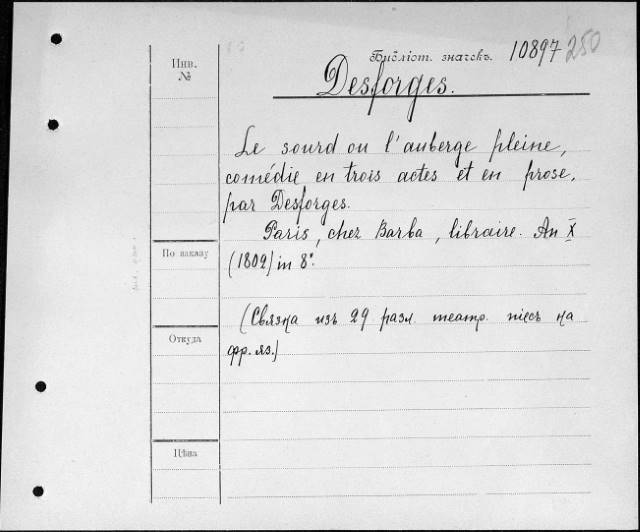 Инв. №
Библіот. значекъ. 10897 250
Desforges.
Le sourd ou l'auberge pleine,
comédie en trois actes et en prose,
par Desforges.
Paris, chez Barba, libraire. An X
(1802) in 8°.
По заказу
(Связка изъ 29 разл. театр. пiесъ на
Откуда
фр. яз.)
Цѣна